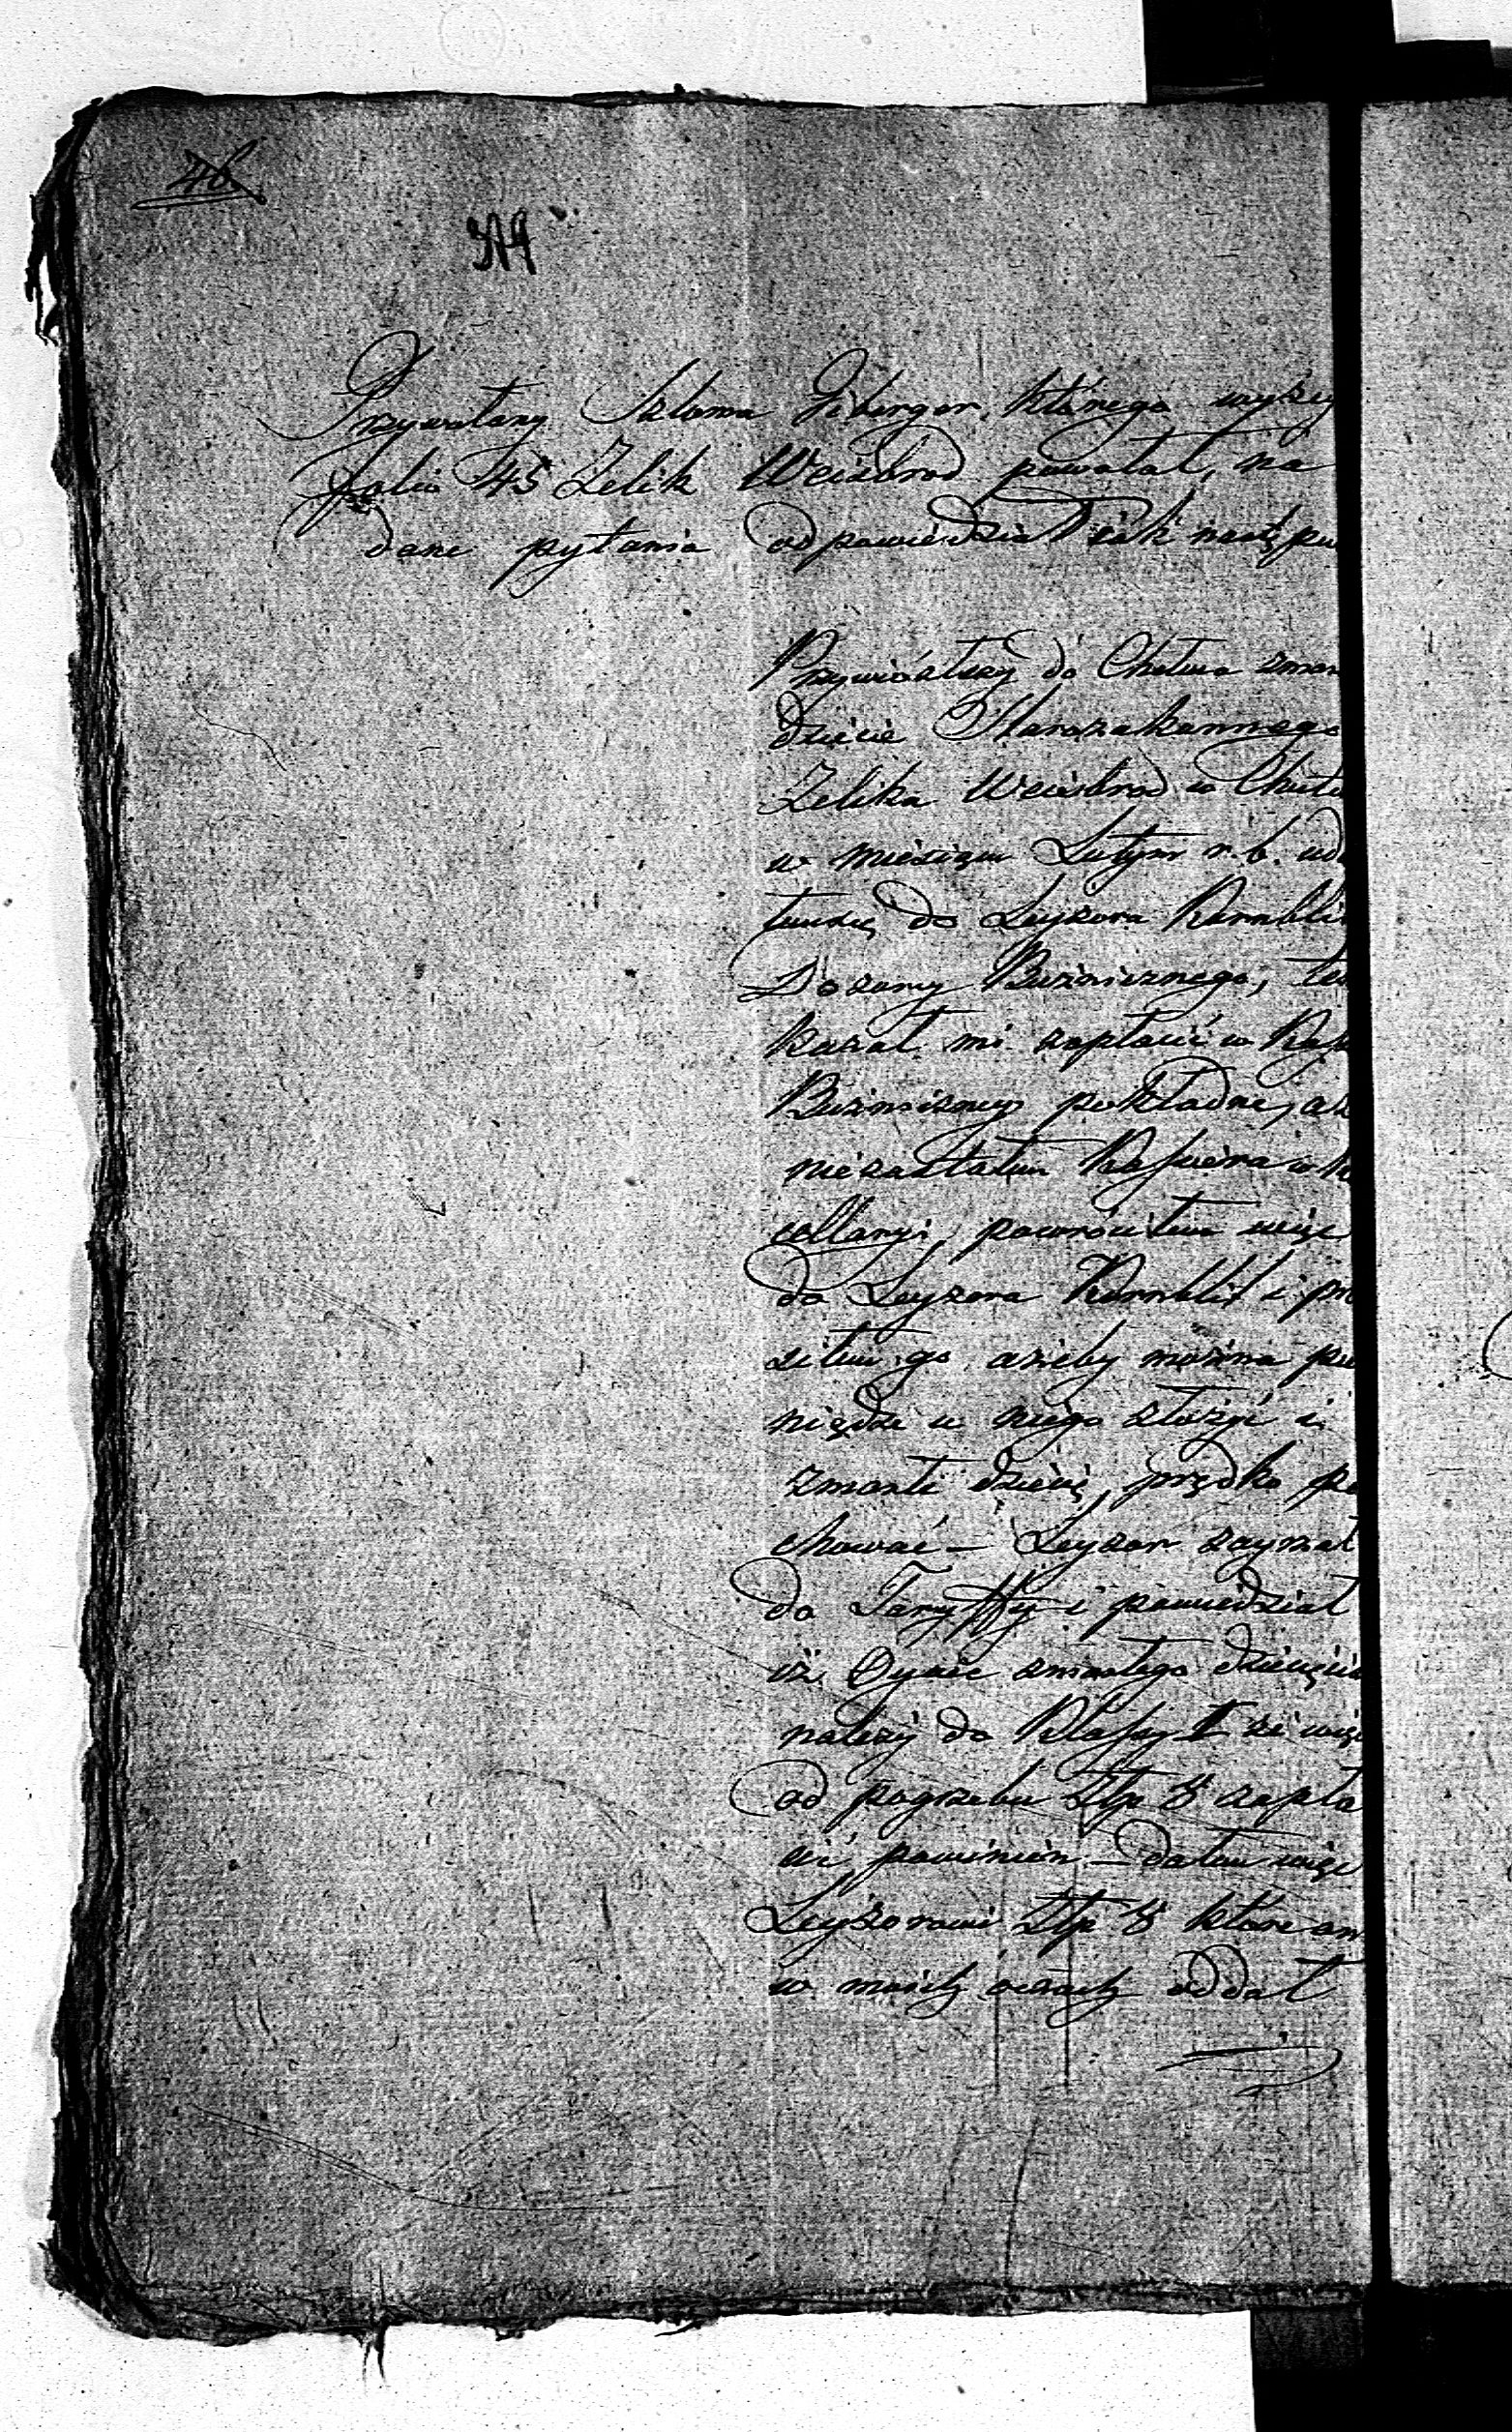 46.
Przywołany Szloma Giberger, którego wyżey
folio 45 Zelik Weisbrod powołał, na
dane pytania odpowiedział iak nastę pu
Przywiózłszy do Chełma zmar
dziécie Starozakonnego
Zelika Weisbrod w Cheł
w miésiącu Lutym r. b. uda
łemsię do Leyzora Kornbli
Dozorcy Bóżnicznego, ten
kazał mi zapłacić w Kas
Bóżniczney pokładne, ale
niezastałem Kassiéra w K
cellaryi, powróciłem więc
do Leyzora Kornblit i pro
siłem go, ażeby można pie
niądze u niego złożyć i
zmarłe dziécię prędko po
chować – Leyzor zayrzał
do Taryffy i powiedział
iż Oyciec zmarłego dziécięcia
należy do Klassy I że więc
od pogrzebu Złp 8 zapła
cić powinién – dałem więc
Leyzorowi Złp 8 które on
w moich oczach oddał